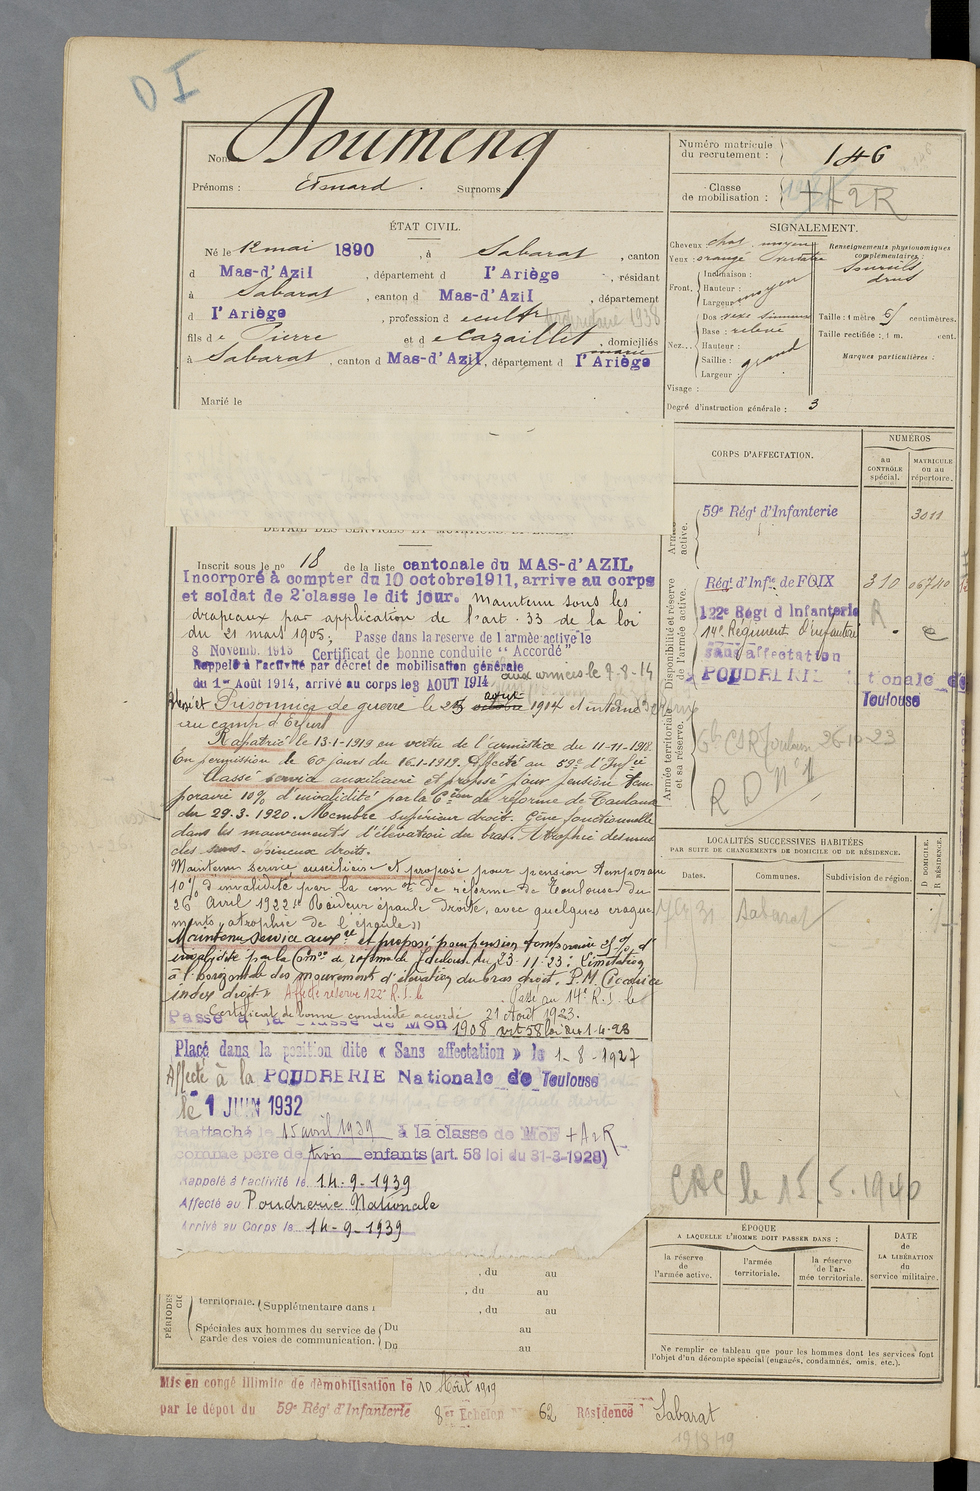 DI
Nom Doumenq
Prénoms : Edouard . Surnoms
Numéro matricule
du recrutement : 146
Classe
de mobilisation : + A 2 R
ÉTAT CIVIL.
Né le 12 mai 1890 , à Sabarat , canton
d Mas-d'Azil , département d l'Ariège , résidant
à Sabarat , canton d Mas-d'Azil , département
d l'Ariège , profession d e cultr 1938
fils de Pierre et d e Cazaillet , domiciliés
à Sabarat , canton d Mas-d'Azil, département d l'Ariège
Marié le
SIGNALEMENT.
Cheveux chat. moyen
Yeux : orangé verdatre
Front, Inclinaison :
Hauteur :
Largeur moyen
Nez... Dos vexe sinueux
Base : relevé
Hauteur :
Saillie : grand
Largeur :
Visage :
Renseignements physionomiques
complémentaires :
Sourcils
drus
Taille : 1 mètre 65 centimètres.
Taille rectifiée : 1 m. cent.
Marques particulières :
Degré d'instruction générale : 3
DÉTAIL DES SERVICES ET MUTATIONS
Inscrit sous le n° 18 de la liste cantonale du MAS-d'AZIL
Incorporé à compter du 10 octobre 1911, arrive au corps
et soldat de 2e classe le dit jour. Maintenu sous les
drapeaux par application de l'art. 33 de la loi
du 21 mars 1905; Passe dans la reserve de l'armée active le
8 Novemb. 1913 Certificat de bonne conduite "Accordé"
Rappelé à l'activité par décret de mobilisation générale
du 1er Août 1914, arrivé au corps le 3 AOUT 1914 aux armées le 7-8-14
Prisonnier de guerre le 23 octobre août 1914 et interné
au camp d'Erfurt
Rapatrié le 13-1-1919 en vertu de l'armistice du 11-11-1918.
En permission de 60 jours du 16-1-1919. Affecté au 59e d'Infie
Classé service auxiliaire et proposé pour pension tem-
poraire 10% d'invalidité par la Con de réforme de Toulouse
du 29.3.1920. Membre supérieur droit. Gêne fonctionnelle
dans les mouvements d'élévation du bras. Atrophie des mus
cles épineux droits.
Maintenu service auxiliaire et proposé pour pension temporaire
10% d'invalidité par la com on de réforme de Toulouse du
26 Avril 1922 "Raideur épaule droite, avec quelques craque
ments, atrophie de l'épaule"
Maintenu service auxre et proposé pour pension temporaire d'
invalidité par la Comon de réforme de Toulouse du 23-11-23: Limitation
à l'horizontale des mouvements d'élévation du bras droit. P.M. Cicatrice
index droit" Affecté réserve 122e R.I. le Passé au 14e R.I. le
Certificat de bonne conduite accordé 21 Août 1923.
Passé à la classe de Mon 1908 art 58 loi du 1-4-23
Placé dans la position dite « Sans affectation » le 1-8-1927
Affecté à la POUDRERIE Nationale de Toulouse
le 1 JUIN 1932
Rattaché le 15 avril 1939 à la classe de MOB + A 2 R
comme père de trois enfants (art. 58 loi du 31-3-1928)
Rappelé à l'activité le 14-9-1939
Affecté au Poudrerie Nationale
Arrivé au Corps le 14-9-1939
CORPS D'AFFECTATION.
NUMÉROS
au
CONTRÔLE
spécial.
MATRICULE
ou au
répertoire.
Armée
active.
59e Régt d'Infanterie 3011
Disponibilité et réserve
de l'armée active.
Régt d'Infie de FOIX 310 06740
122e Régt d Infanterie R
14e Régiment d'Infanterie
sans affectation
POUDRERIE Nationale de
Toulouse
Armée territoriale
et sa réserve.
CSR Toulouse 26-10-23
R D N°1
LOCALITÉS SUCCESSIVES HABITÉES
PAR SUITE DE CHANGEMENTS DE DOMICILE OU DE RÉSIDENCE.
Dates. Communes. Subdivision de région.
D DOMICILE.
R RÉSIDENCE.
31 Sabarat
le 15.5.1940
ÉPOQUE
A LAQUELLE L'HOMME DOIT PASSER DANS :
la réserve
de
l'armée active.
l'armée
territoriale.
la réserve
de l'ar-
mée territoriale.
DATE
de
LA LIBÉRATION
du
service militaire.
Ne remplir ce tableau que pour les hommes dont les services font
l'objet d'un décompte spécial (engagés, condamnés, omis, etc.).
PÉRIODES
, du au
, du au
territoriale. (Supplémentaire dans l , du au
Spéciales aux hommes du service de Du au
garde des voies de communication. Du au
Mis en congé illimité de démobilisation le 10 Août 1919
par le dépot du 59e Régt d'Infanterie 8er Echelon N° 62 Résidence Sabarat
19/8/19